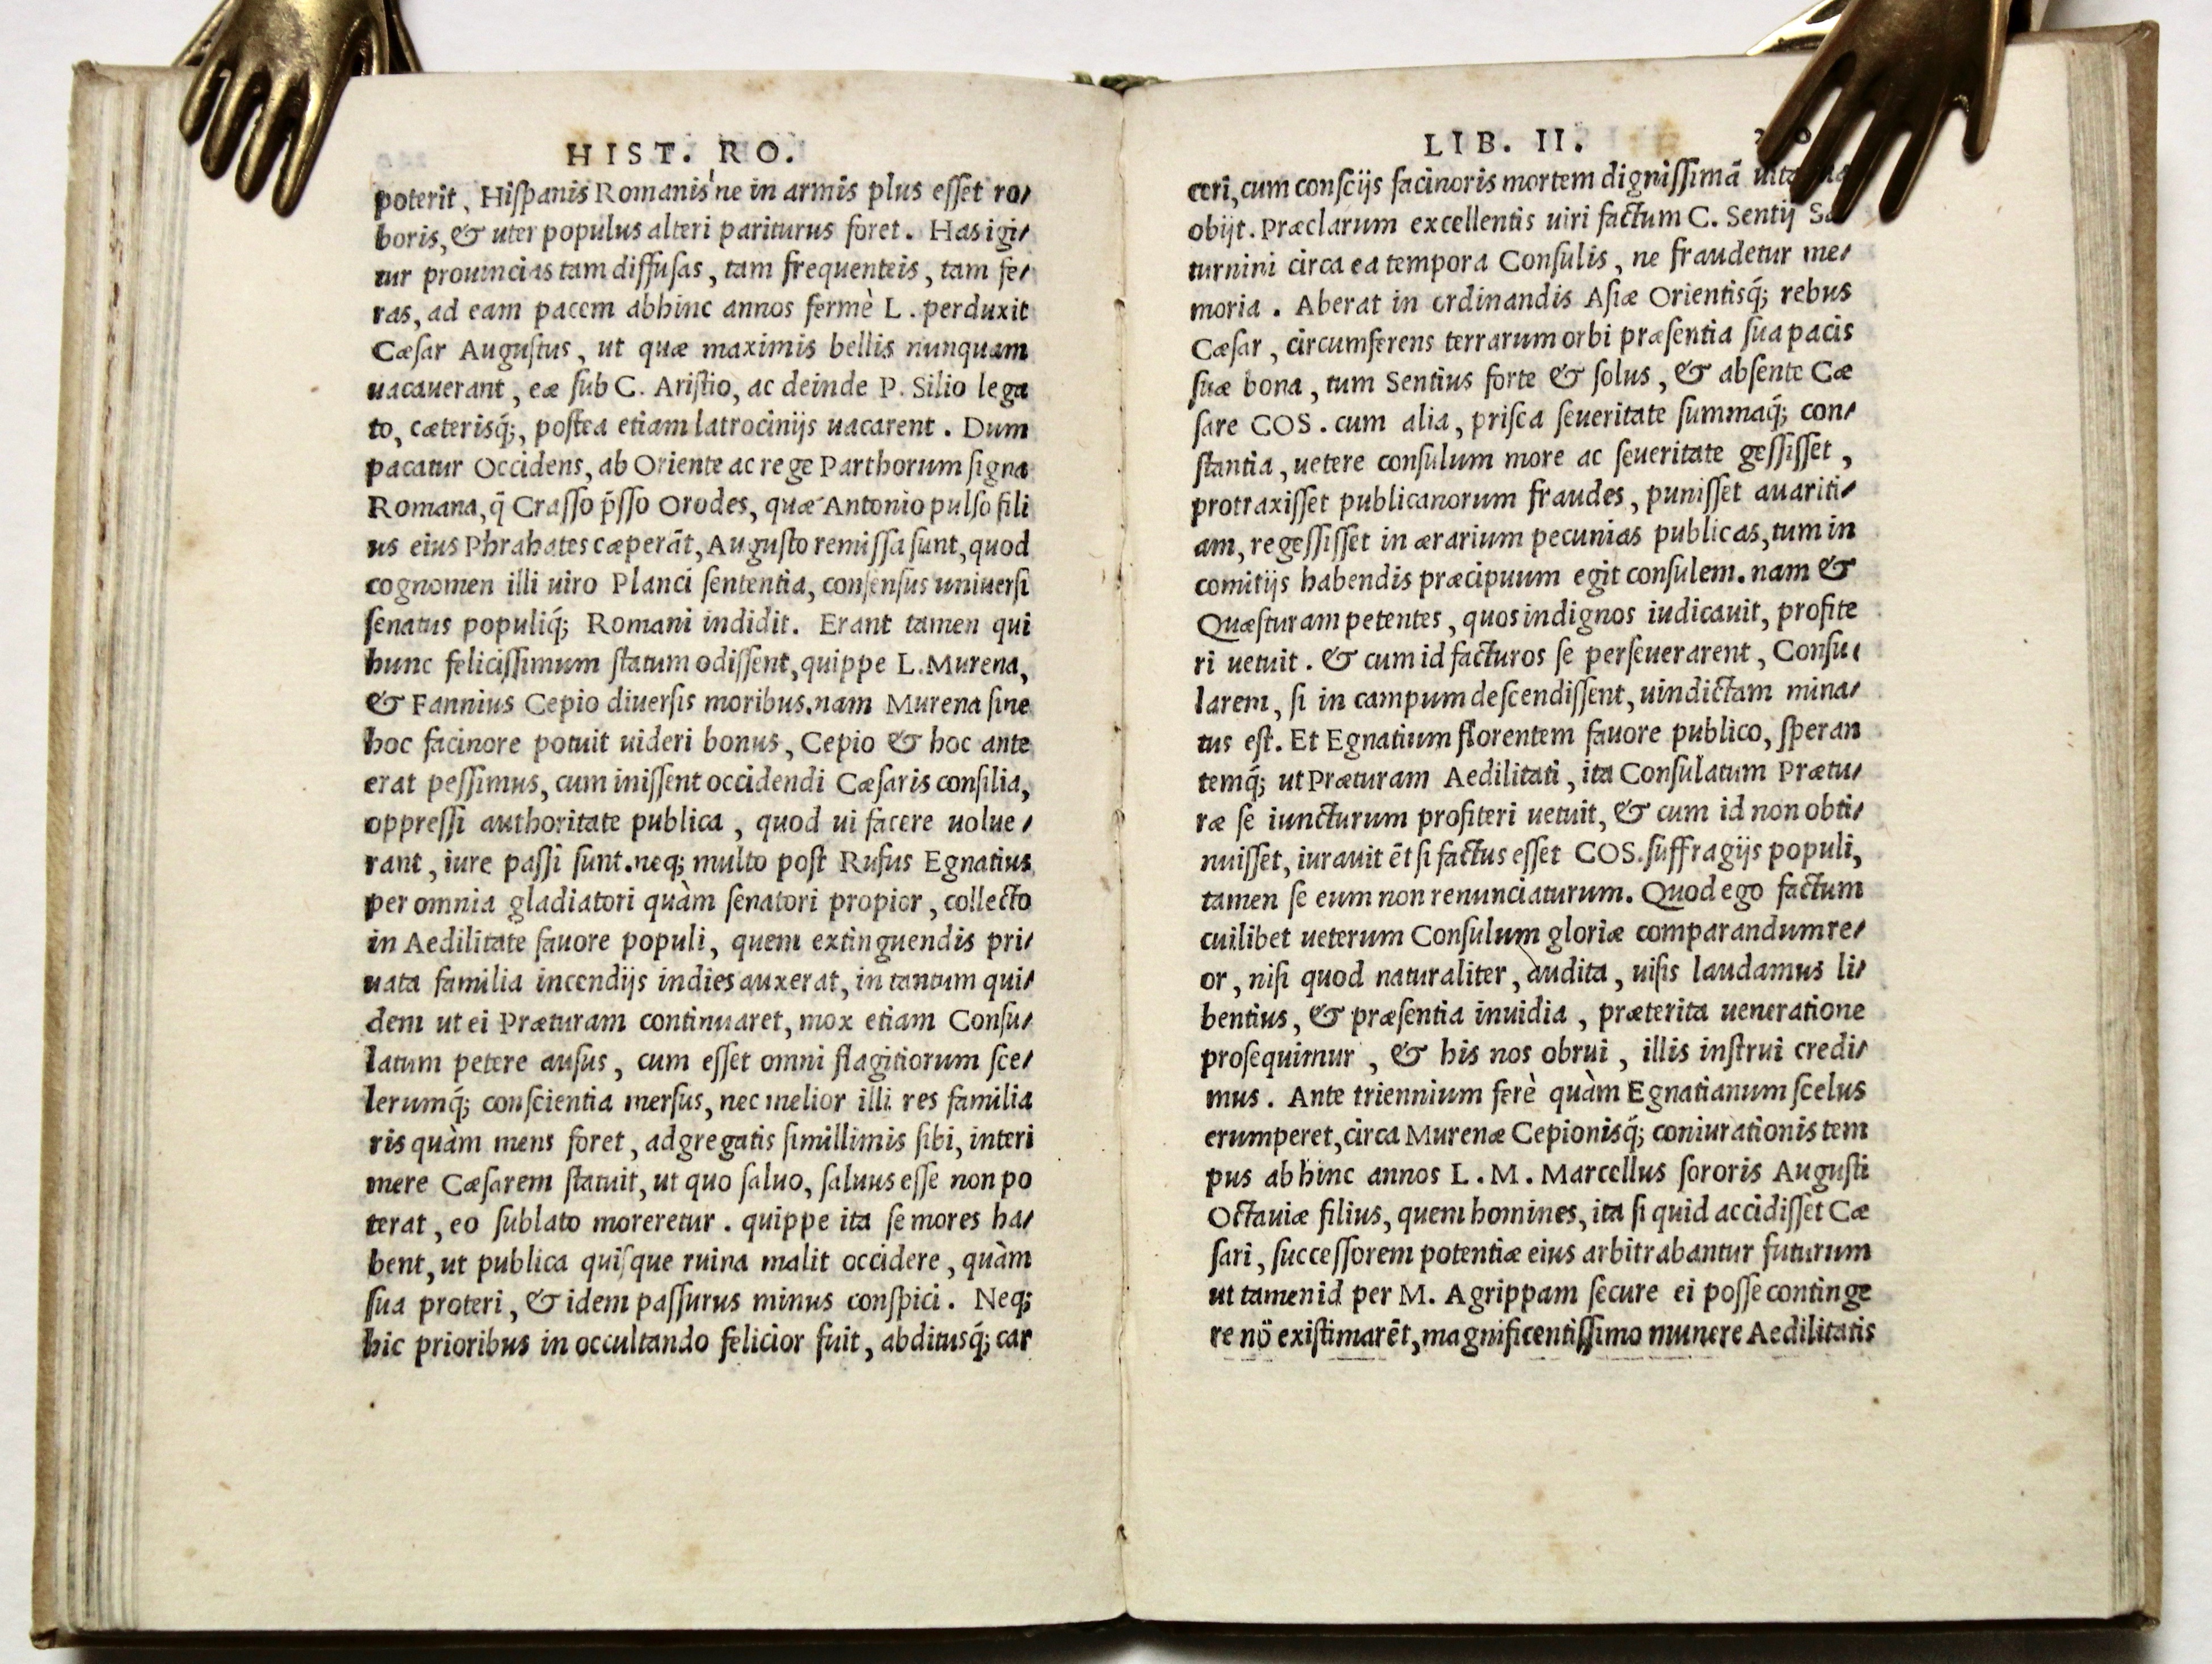 HIST. RO.
poterit, Hiſpanis Romanis'ne in armis plus eſſet ro/
boris, & uter populus alteri pariturus foret. Has igi/
tur prouincias tam diffuſas, tam frequenteis, tam fe/
ras, ad eam pacem abhinc annos fermè L. perduxit
Cæſar Auguſtus, ut quæ maximis bellis nunquam
uacauerant, eæ ſub C. Ariſtio, ac deinde P. Silio lega
to, cæterisq́;, poſtea etiam latrocinijs uacarent. Dum
pacatur Occidens, ab Oriente ac rege Parthorum ſigna
Romana, q̄ Craſſo p̄ſſo Orodes, quæ Antonio pulſo fili
us eius Phrahates cæperāt, Auguſto remiſſa ſunt, quod
cognomen illi uiro Planci ſententia, conſenſus uniuerſi
ſenatus populiq́; Romani indidit. Erant tamen qui
hunc feliciſſimum ſtatum odiſſent, quippe L. Murena,
& Fannius Cepio diuerſis moribus. nam Murena ſine
hoc facinore potuit uideri bonus, Cepio & hoc ante
erat peſſimus, cum iniſſent occidendi Cæſaris conſilia,
oppreſſi authoritate publica, quod ui facere uolue/
rant, iure paſſi ſunt. neq; multo poſt Rufus Egnatius
per omnia gladiatori quàm ſenatori propior, collecto
in Aedilitate fauore populi, quem extinguendis pri/
uata familia incendijs indies auxerat, in tantum qui/
dem ut ei Præturam continuaret, mox etiam Conſu/
latum petere auſus, cum eſſet omni flagitiorum ſce/
lerumq́; conſcientia merſus, nec melior illi res familia
ris quàm mens foret, adgregatis ſimillimis ſibi, interi
mere Cæſarem ſtatuit, ut quo ſaluo, ſaluus eſſe non po
terat, eo ſublato moreretur. quippe ita ſe mores ha/
bent, ut publica quiſque ruina malit occidere, quàm
ſua proteri, & idem paſſurus minus conſpici. Neq;
hic prioribus in occultando felicior fuit, abditusq́; car
LIB. II.
ceri, cum conſcijs facinoris mortem digniſſimā uita
obijt. Præclarum excellentis uiri factum C. Sentij Sa
turnini circa ea tempora Conſulis, ne fraudetur me/
moria. Aberat in ordinandis Aſiæ Orientisq́; rebus
Cæſar, circumferens terrarum orbi præſentia ſua pacis
ſuæ bona, tum Sentius forte & ſolus, & abſente Cæ
ſare COS. cum alia, priſca ſeueritate ſummaq́; con/
ſtantia, uetere conſulum more ac ſeueritate geſſiſſet,
protraxiſſet publicanorum fraudes, puniſſet auariti/
am, regeſſiſſet in ærarium pecunias publicas, tum in
comitijs habendis præcipuum egit conſulem. nam &
Quæſturam petentes, quos indignos iudicauit, profite
ri uetuit. & cum id facturos ſe perſeuerarent, Conſu/
larem, ſi in campum deſcendiſſent, uindictam mina/
tus eſt. Et Egnatium florentem fauore publico, ſperan
temq́; ut Præturam Aedilitati, ita Conſulatum Prætu/
ræ ſe iuncturum profiteri uetuit, & cum id non obti/
nuiſſet, iurauit ēt ſi factus eſſet COS. ſuffragijs populi,
tamen ſe eum non renunciaturum. Quod ego factum
cuilibet ueterum Conſulum gloriæ comparandum re/
or, niſi quod naturaliter, audita, uiſis laudamus li/
bentius, & præſentia inuidia, præterita ueneratione
proſequimur, & his nos obrui, illis inſtrui credi/
mus. Ante triennium ferè quàm Egnatianum ſcelus
erumperet, circa Murenæ Cepionisq́; coniurationis tem
pus abhinc annos L. M. Marcellus ſororis Auguſti
Octauiæ filius, quem homines, ita ſi quid accidiſſet Cæ
ſari, ſucceſſorem potentiæ eius arbitrabantur futurum
ut tamen id per M. Agrippam ſecure ei poſſe continge
re nō exiſtimarēt, magnificentiſſimo munere Aedilitatis